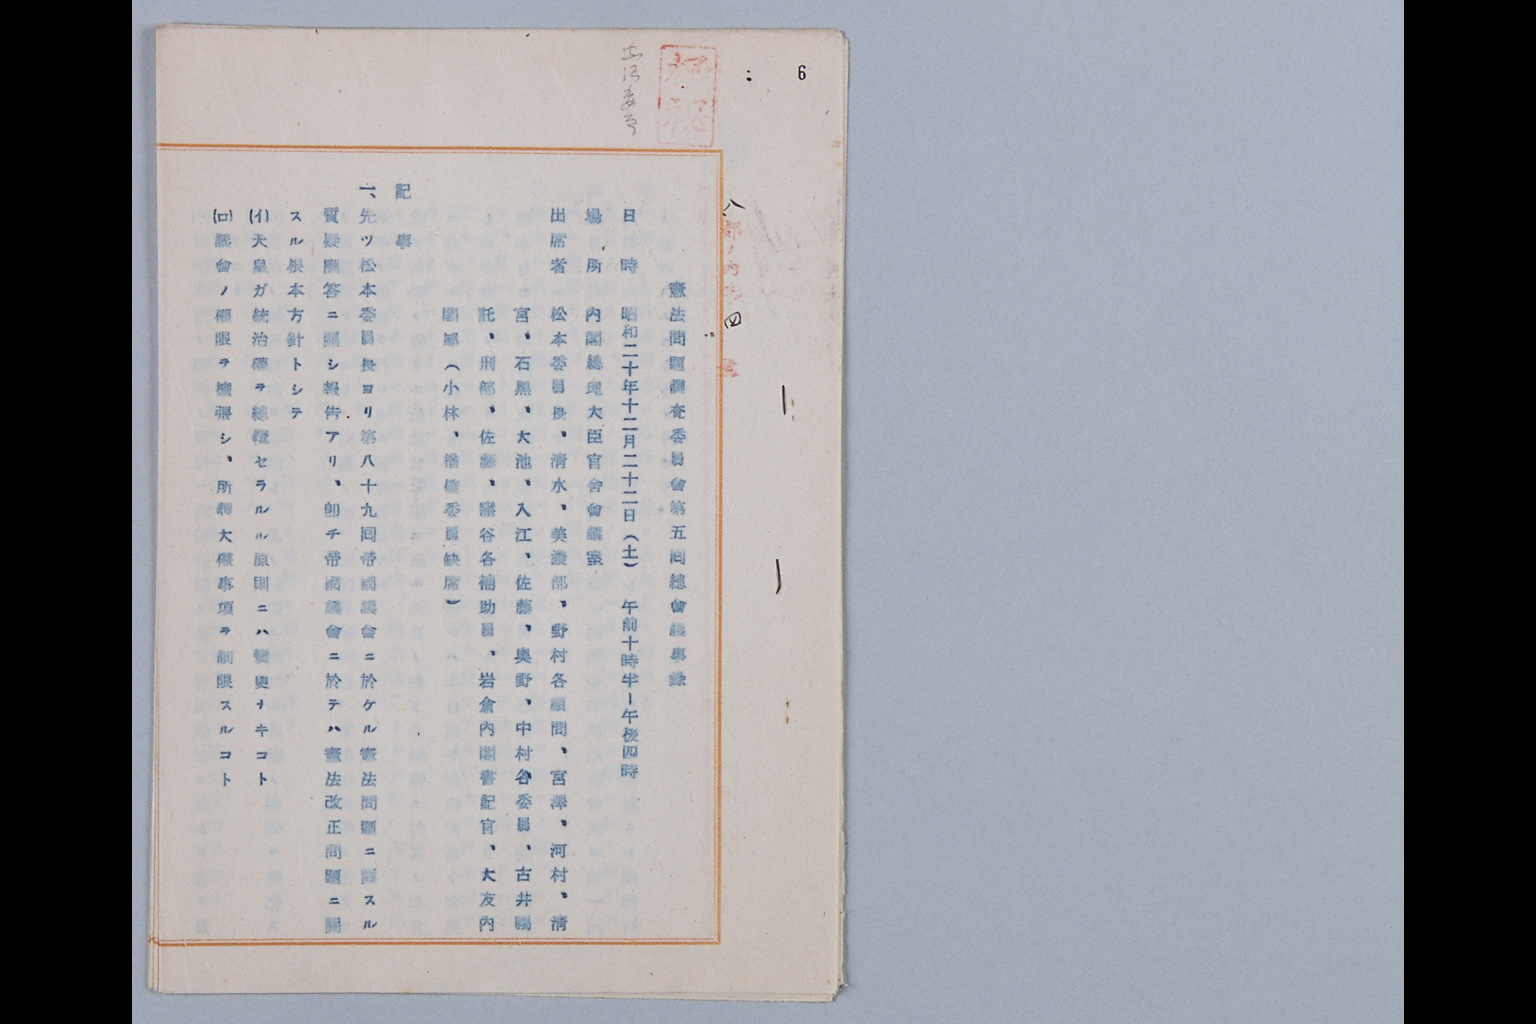 6
極秘
八部ノ内第四號
憲法問題調査委員會第五回總會議事錄
日時 昭和二十年十二月二十二日(土) 午前十時半ー午後四時
場所 內閣總理大臣官舍會議室
出席者 松本委員長、淸水、美濃部、野村各顧問、宮澤、河村、淸
宮、石黑、大池、入江、佐藤、奥野、中村各委員、古井囑
託、刑部、佐藤、窪谷各補助員、岩倉內閣書記官、大友內
閣屬(小林、楢橋委員缺席)
記事
一、先ツ松本委員長ヨリ第八十九回帝國議會ニ於ケル憲法問題ニ關スル
質疑應答ニ關シ報告アリ、卽チ帝國議會ニ於テハ憲法改正問題ニ關
スル根本方針トシテ
(イ)天皇ガ統治權ヲ總攬セラルル原則ニハ變更ナキコト
(ロ)議會ノ權限ヲ擴張シ、所謂大權事項ヲ制限スルコト